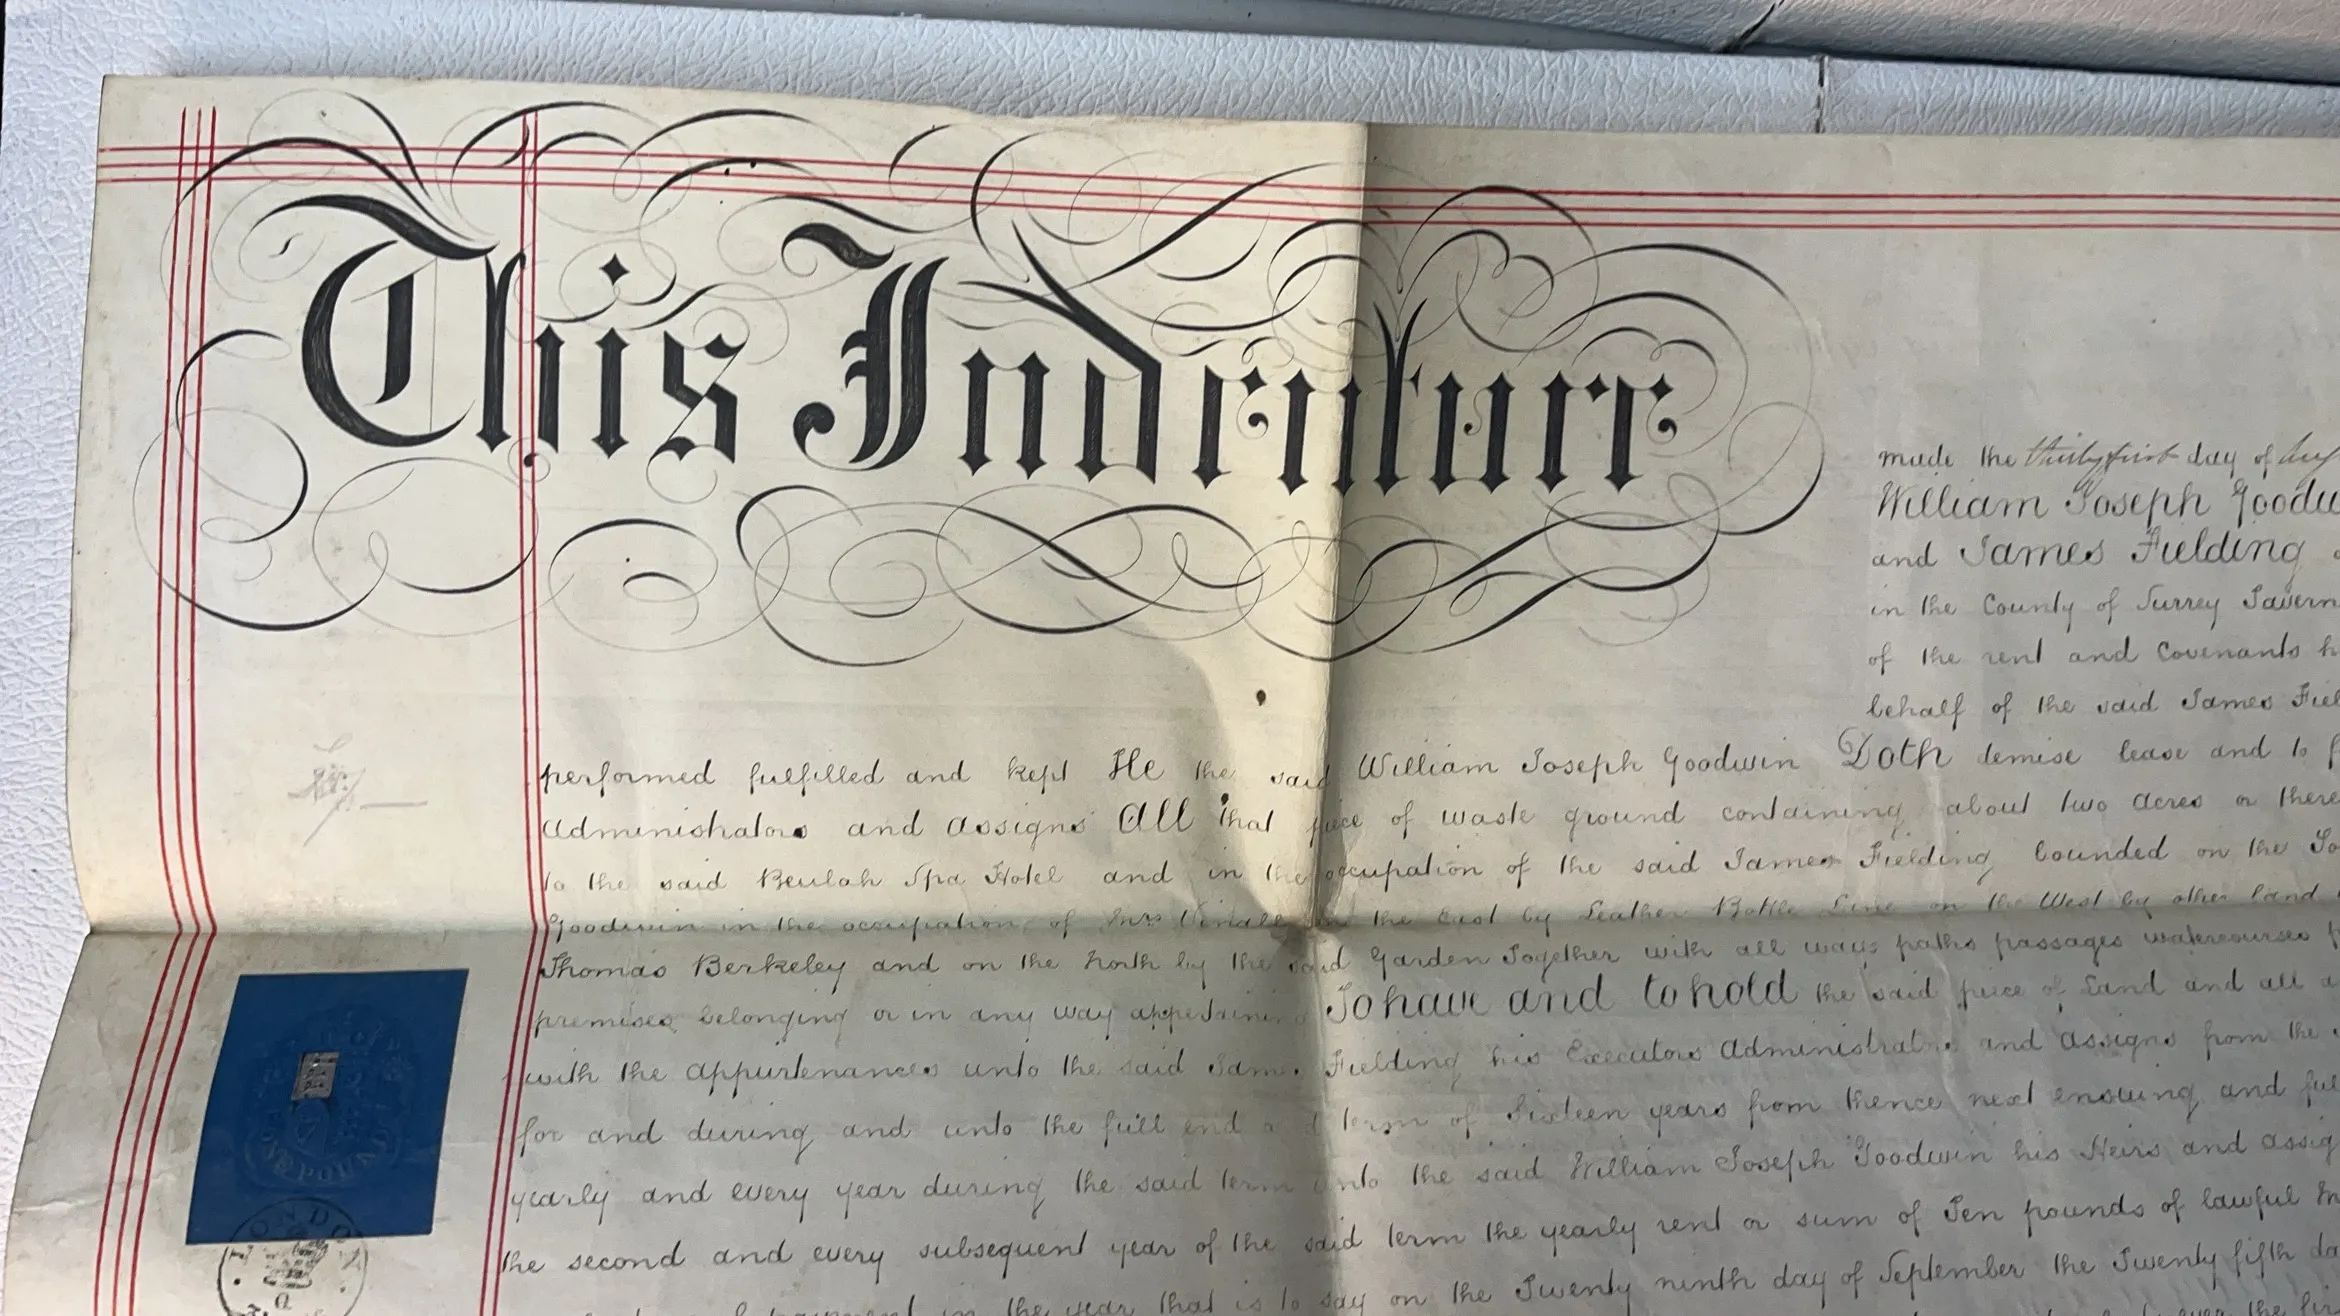 This Indenture
made the thirty first day of
William Joseph
and James Fielding
in the County of Surrey
of the rent and Covenants
behalf of the said James
performed fulfilled and kept He the said William Joseph Goodwin Doth demise lease and to
Administrators and Assigns All that piece of waste ground containing about two Acres or
to the said Beulah Spa Hotel and in the occupation of the said James Fielding bounded on the
Goodwin in the occupation of Mrs on the East by Leather Bottle Lane on the West by other land
Thomas Berkeley and on the North by the said Garden Together with all ways paths passages watercourses
premises belonging or in any way appertaining To have and to hold the said piece of Land and all
with the appurtenances unto the said James Fielding his Executors Administrators and Assigns from the
for and during and unto the full end and term of Sixteen years from thence next ensuing and
yearly and every year during the said term unto the said William Joseph Goodwin his Heirs and
the second and every subsequent year of the said term the yearly rent or sum of Ten pounds of lawful
in the year that is to say on the Twenty ninth day of September the Twenty fifth
ONE POUND
LONDON